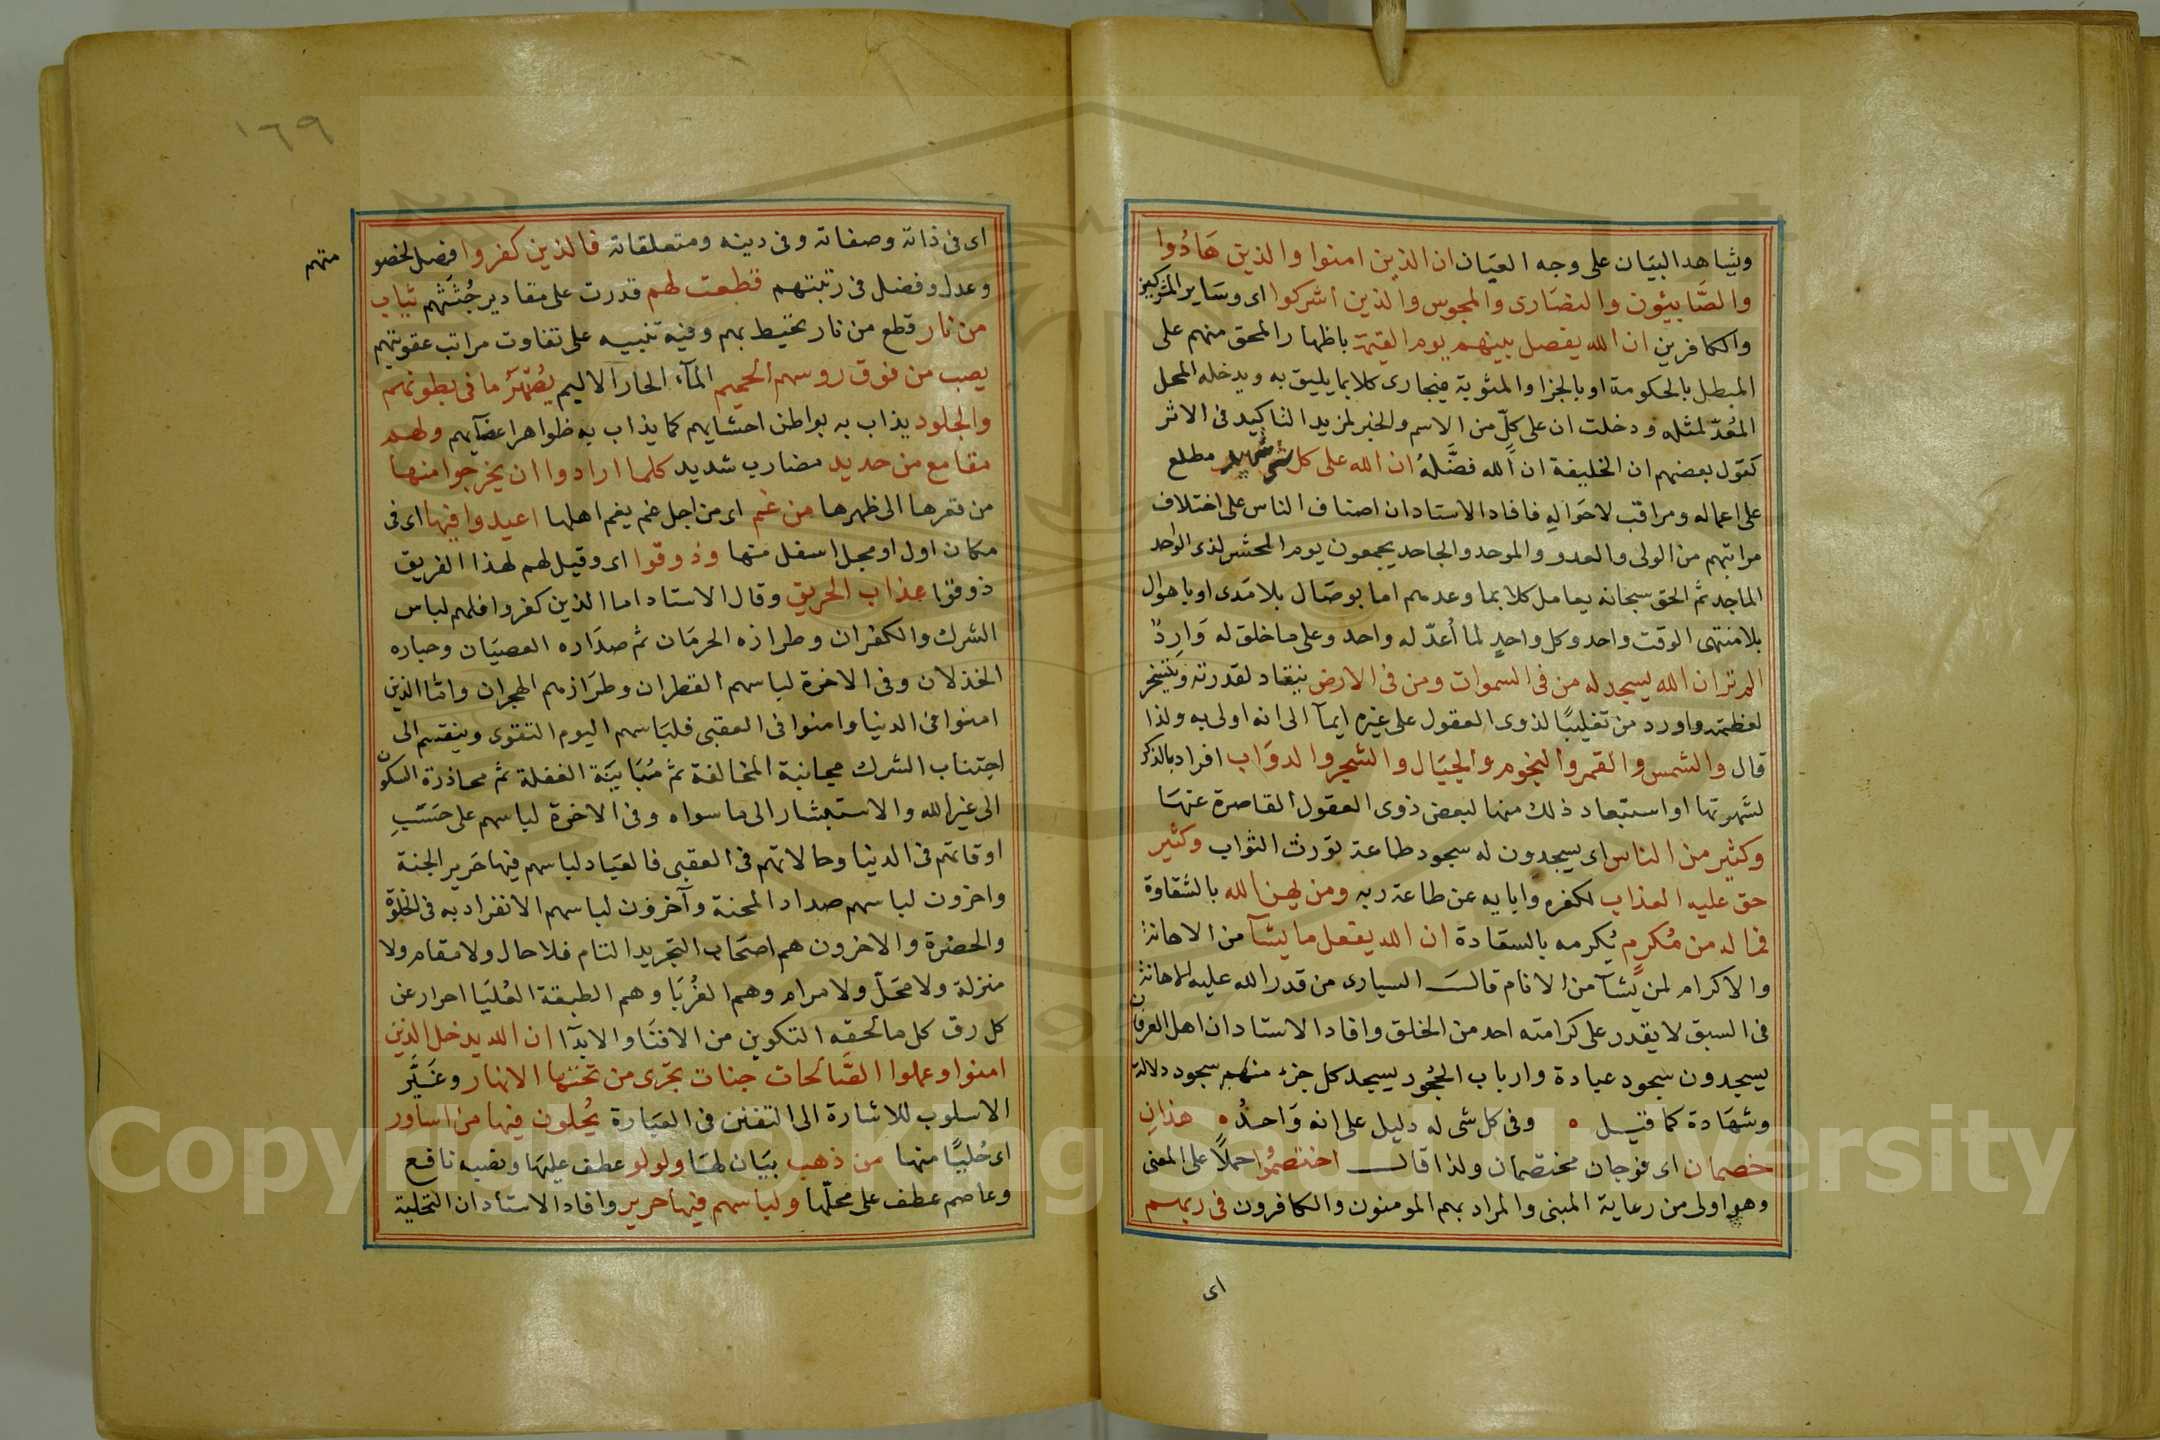 ويشاهد البيان على وجه العيان ان الذين امنوا والذين هادوا
والصابئون والنصارى والمجوس والذين اشركوا اى وساير المشركين
والكافرين ان الله يفصل بينهم يوم القيمة باظهار المحق منهم على
المبطل بالحكومة او بالجزا والمثوبة فيجازى كلا بما يليق به ويدخله المحل
المُعَدّ لمثله ودخلت ان على كلّ من الاسم والخبر لمزيد التاكيد فى الاثر
كقول بعضهم ان الخليفة ان الله فضّلهُ ان الله على كل شئ شهيد مطلع
على اعماله ومراقب لاحواله فافاد الاستاد ان اصناف الناس على اختلاف
مراتبهم من الولى والعدو والموحد والجاحد يجمعون يوم المحشر لذى الواحد
الماجد ثم الحق سبحانه يعامل كلا بما وعدهم اما بوصال بلا مدى او باهوال
بلا منتهى الوقت واحد وكل واحدٍ لما أعدّ له واحد وعلى ما خلق له وَارِدٌ
الم تر ان الله يسجد له من فى السموات ومن فى الارض ينقاد لقدرته ويتسخر
لعظمته واورد من تغليبًا لذوى العقول على غيره ايمآ الى انه اولى به ولذا
قال والشمس والقمر والنجوم والجبال والشجر والدوَاب افراد بالذكر
لشهرتها او استبعاد ذلك منها لبعض ذوى العقول القاصرة عنها
وكثير من الناس اى يسجدون له سجود طاعة تورث الثواب وكثير
حق عليه العذاب لكفره وابايه عن طاعة ربه ومن يهن الله بالشقاوة
فما له من مُكرِم يُكرمه بالسعادة ان الله يفعل ما يشآ من الاهانة
والاكرام لمن يشآ من الانام قال السيارى من قدر الله عليه الاهانة
فى السبق لا يقدر على كرامته احد من الخلق وافاد الاستاد ان اهل العرفان
يسجدون سجود عبادة وارباب الجُحُود يسجد كل جزء منهم سجود دلالة
وشهادة كما قيل ه وفى كل شى له دليل على انه وَاحدُ ه هذانِ
خصمان اى فوجان مختصمان ولذا قال اختصمُوا حملاً على المعنى
وهو اولى من رعاية المبنى والمراد بهم المومنون والكافرون فى ربهم
اى
١٦٩
اى فى ذاته وصفاته وفى دينه ومتعلقاته فالذين كفروا فصل لخصو
منهم
وعدل وفضل فى رتبتهم قطعت لهم قدرت على مقادير جُثَثهم ثياب
من نار قطع من نار تحيط بهم وفيه تنبيه على تفاوت مراتب عقوبتهم
يصب من فوق روسهم الحميم المآء الحار الاليم يُصْهَرُ ما فى بطونهم
والجلود يذاب به بواطن احشايهم كما يذاب به ظواهر اعضآيهم ولهم
مقامع من حديد مضارب شديد كلما ارادوا ان يخرجوا منها
من قعرها الى ظهرها من غم اى من اجل غم يغم اهلها اعيدوا فيها اى فى
مكان اول او محل اسفل منها وذوقوا اى وقيل لهم لهذا الفريق
ذوقوا عذاب الحريق وقال الاستاد اما الذين كفروا فلهم لباس
الشرك والكفران وطرازه الحرمان ثم صداره العصيان وحباره
الخذلان وفى الاخرة لباسهم القطران وطرازهم الهجران وامّا الذين
امنوا فى الدنيا وامنوا فى العقبى فلباسهم اليوم التقوى وينقسم الى
اجتناب الشرك مجانبة المخالفة ثم مُبَاينَة الغفلة ثم محاذرة السكون
الى غير الله والاستبشار الى ما سواه وفى الاخرة لباسهم على حَسَبِ
اوقاتهم فى الدنيا وحالاتهم فى العقبى فالعبَاد لباسهم فيها حرير الجنة
واخرون لباسهم صداد المحنة وآخرون لباسهم الانفراد به فى الخلوة
والحضرة والاخرون هم اصحاب التجريد التام فلا حال ولا مقام ولا
منزلة ولا محَلّ ولا مرام وهم الغُرَبَا وهم الطبقة العُليَا احرار عن
كل رق كل ما لحقه التكوين من الافنَا والابدآ ان الله يدخل الذين
امنوا وعملوا الصَّالحات جنات تجرى من تحتها الانهار وغَيَّر
الاسلوب للاشارة الى التفنن فى العبَارة يُحلون فيها من اساور
اى حُليًا منها من ذهب بيَان لهَا ولولو عطف عليها ونصبه نافع
وعاصم عطف على محلّها ولباسهم فيها حرير وافاد الاستاد ان التحلية